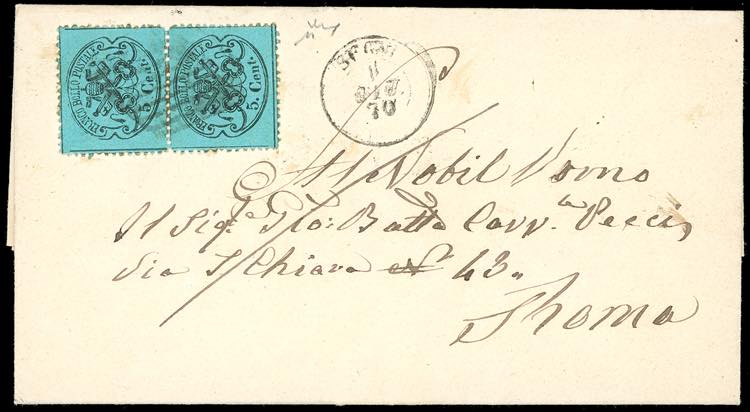 FRANCO BOLLO POSTALE
5 Cent.
FRANCO BOLLO POSTALE
5 Cent.
70
Al Nobil Uomo
Il Sig.e Gio: Batta Cav.r Pecci,
Via S. Chiara N° 43.
Roma